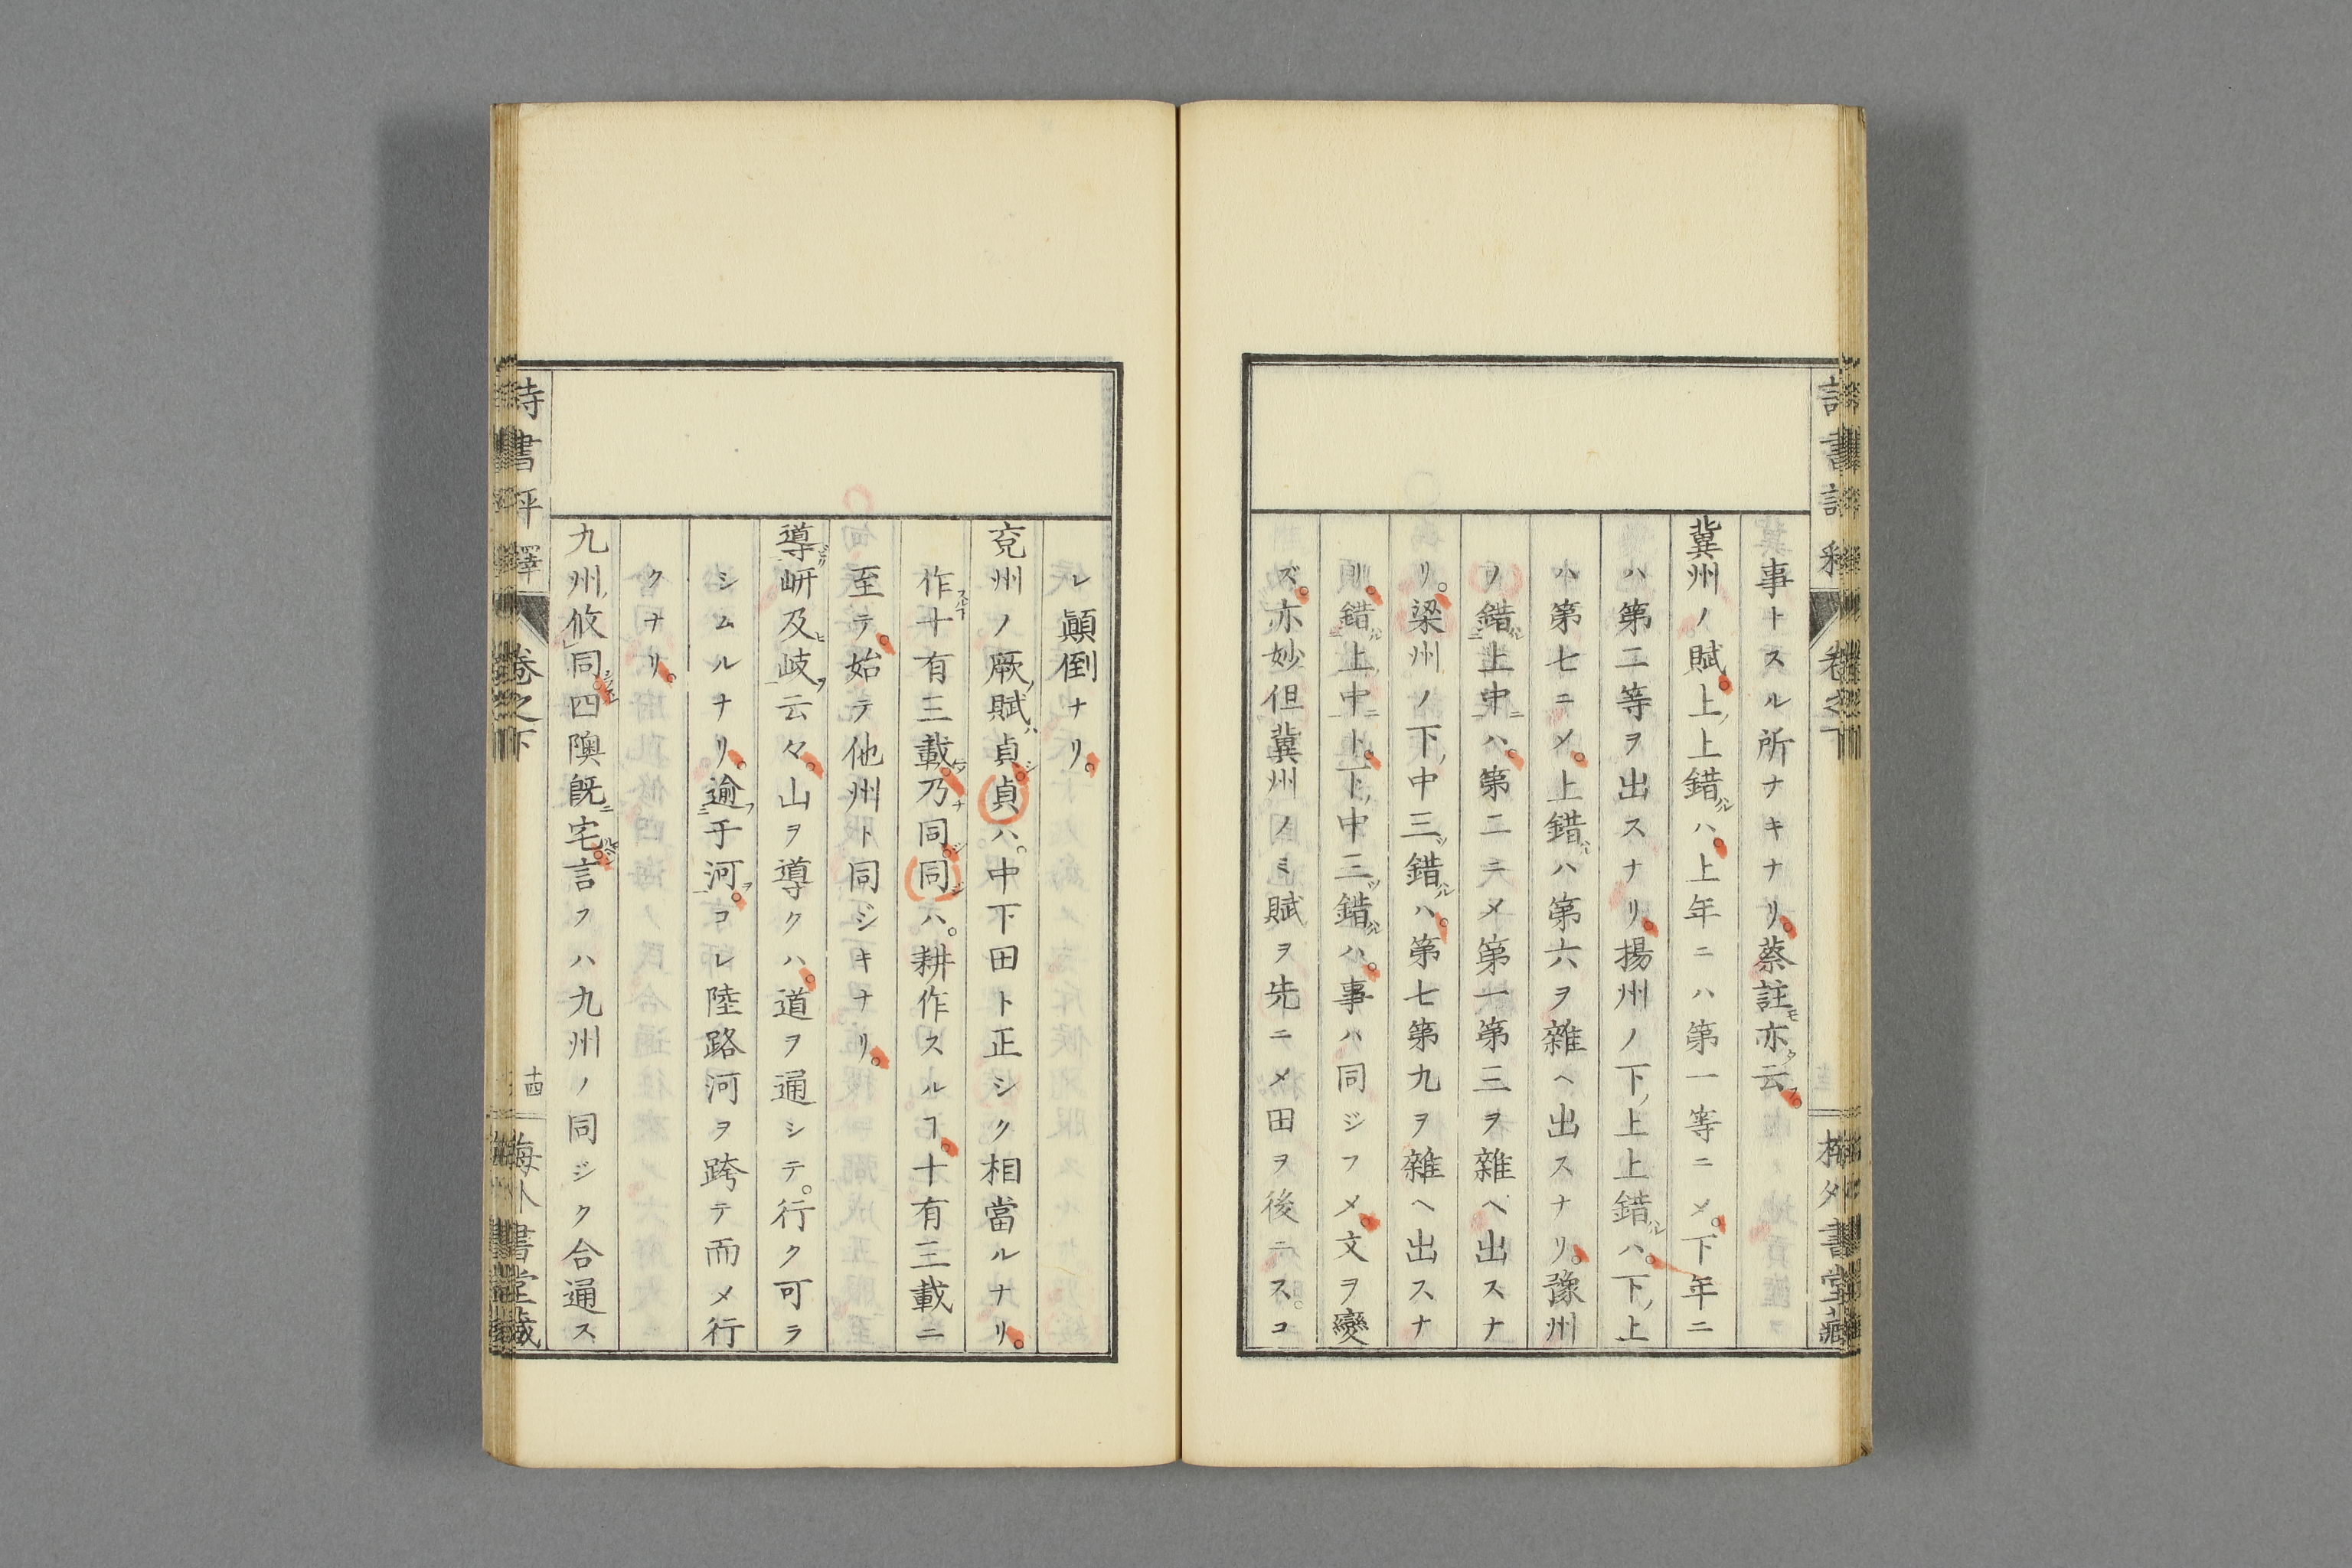 事トスル所ナキナリ。蔡註亦云フ。
冀州ノ賦。上ノ上錯ハ。上年ニハ第一等ニメ。下年ニ
ハ第二等ヲ出スナリ。揚州ノ下ノ上上錯ハ。下ノ上
ハ第七ニメ。上錯ハ第六ヲ雜ヘ出スナリ。豫州
ノ錯上中ハ。第二ニメ第一第三ヲ雜ヘ出スナ
リ。梁州ノ下ノ中三錯ハ。第七第九ヲ雜ヘ出スナ
リ。錯上ノ中ト。下ノ中三錯ハ。事ハ同ジフメ。文ヲ變
ズ。亦妙但冀州ノミ賦ヲ先ニメ田ヲ後ニス。コ
レ顚倒ナリ。
兗州ノ厥賦貞。貞ハ。中下田ト正シク相當ルナリ。
作十有三載。乃同。同ハ。耕作スルヿ。十有三載ニ
至テ。始テ他州ト同ジキナリ。
導岍及岐云々。山ヲ導クハ。道ヲ通シテ。行ク可ラ
シムルナリ。逾于河。コレ陸路河ヲ跨テ而メ行
クナリ。
九州攸同。四隩既宅。言フハ九州ノ同ジク合通ス
詩書評釋
卷之下
十四
書堂藏